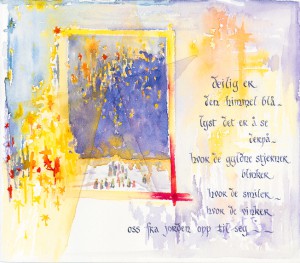 deilig er
den himmel blå_
lyst det er å se
derpå_
hvor de gyldne stjerner
blinker
hvor de smiler_
hvor de vinker
oss fra jorden opp til seg _ _